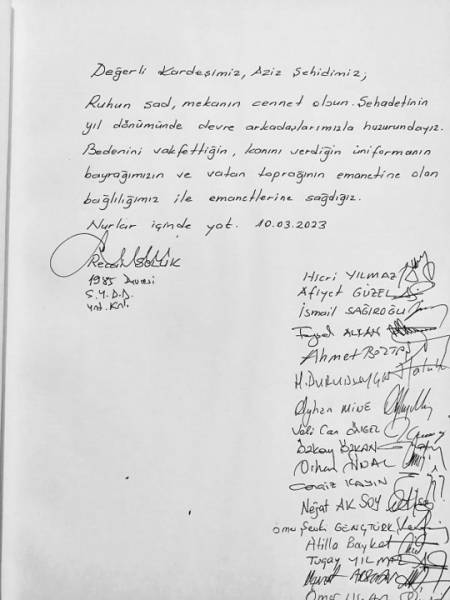 Değerli Kardeşimiz, Aziz Şehidimiz;
Ruhun şad, mekanın cennet olsun. Şehadetinin
yıl dönümünde devre arkadaşlarımızla huzurundayız.
Bedenini vakfettiğin, kanını verdiğin üniformanın
bayrağımızın ve vatan toprağının emanetine olan
bağlılığımız ile emanetlerine sağdığız.
Nurlar içinde yat. 10.03.2023
1985 Devresi
Hicri YILMAZ
Afiyet GÜZEL
İsmail SAĞIROĞLU
Ahmet
Ayhan MİNE
Veli Can
Özkay ÖZKAN
Orhan ÜNAL
Cengiz KAYIN
Nejat AKSOY
GENÇTÜRK
Atilla Baykat
Tugay YILMAZ
Ömer